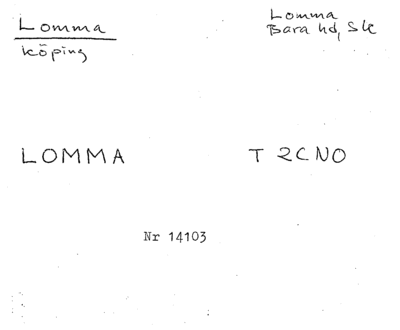 Lomma
köping
Lomma
Bara hd, Sk
LOMMA
T 2CNO
Nr 14103